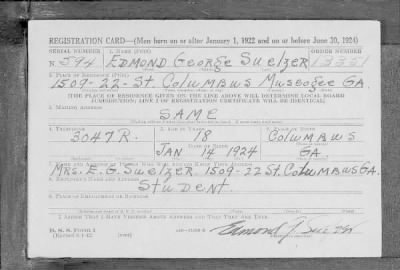 REGISTRATION CARD—(Men born on or after January 1, 1922 and on or before June 30, 1924)
SERIAL NUMBER 1. NAME (Print) ORDER NUMBER
N 594 EDMOND George Suelzer 13351
2. PLACE OF RESIDENCE (Print)
1509-22-St. Columbus Muscogee GA
[THE PLACE OF RESIDENCE GIVEN ON THE LINE ABOVE WILL DETERMINE LOCAL BOARD
JURISDICTION; LINE 2 OF REGISTRATION CERTIFICATE WILL BE IDENTICAL]
3. MAILING ADDRESS
SAME
4. TELEPHONE 5. AGE IN YEARS 6. PLACE OF BIRTH
3047R. 18 Columbus
DATE OF BIRTH
JAN 14 1924 GA.
7. NAME AND ADDRESS OF PERSON WHO WILL ALWAYS KNOW YOUR ADDRESS
MRS. E. G. Suelzer 1509-22 St. Columbus GA.
8. EMPLOYER'S NAME AND ADDRESS
Student
9. PLACE OF EMPLOYMENT OR BUSINESS
I AFFIRM THAT I HAVE VERIFIED ABOVE ANSWERS AND THAT THEY ARE TRUE.
D. S. S. Form 1
Edmond G. Suelzer